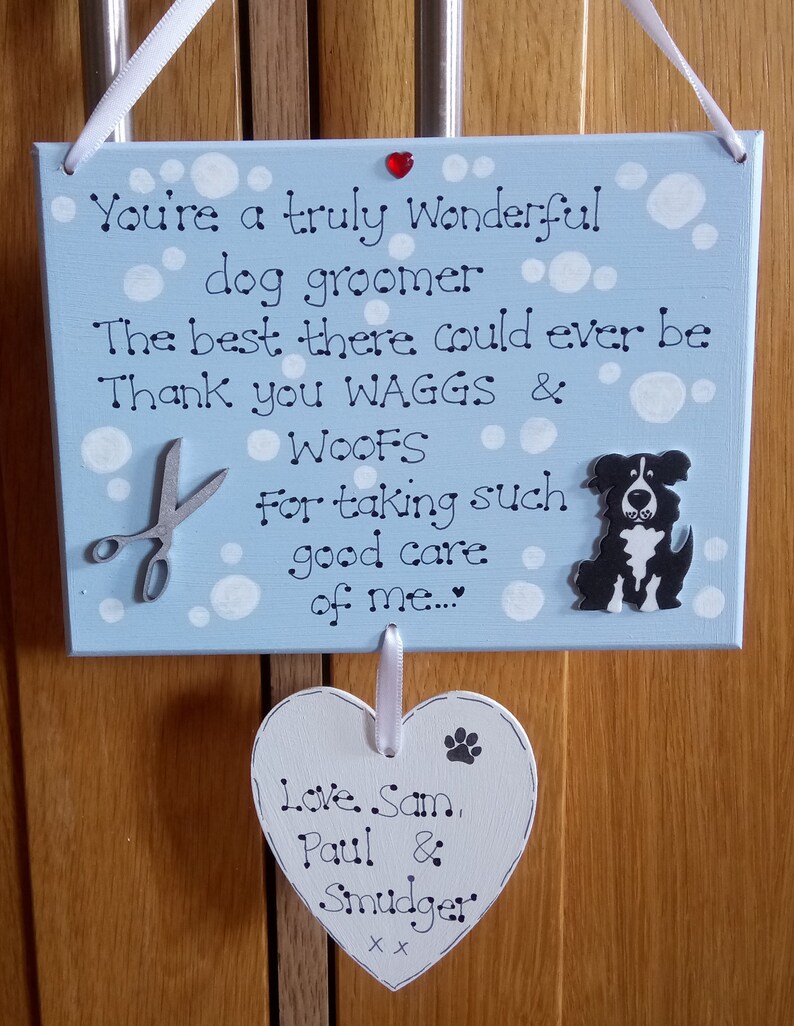 You're a truly Wonderful
dog groomer
The best there could ever be
Thank you WAGGS &
WOOFS
For taking such
good care
of me...♥
Love Sam,
Paul &
Smudger
x x